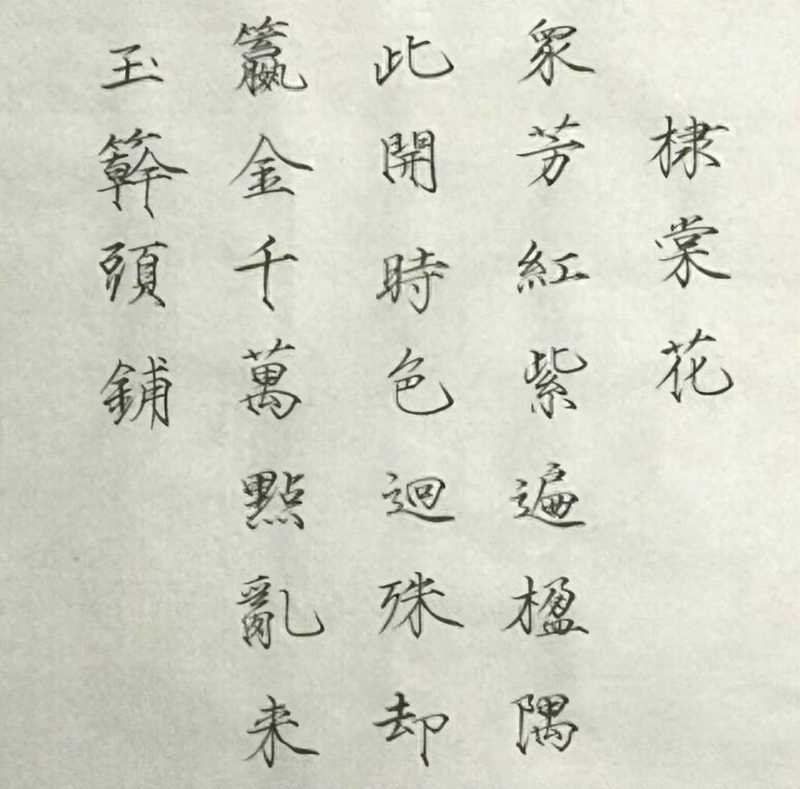 棣棠花
眾芳紅紫遍楹隅
此開時色迥殊却
籯金千萬點亂来
玉簳頭鋪